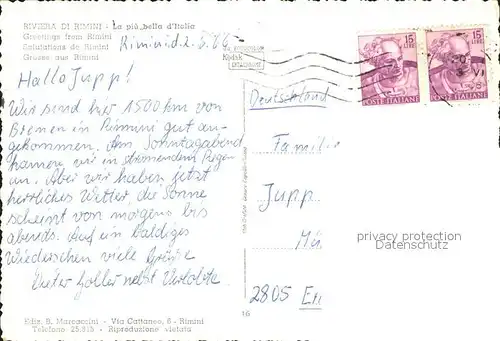 RIVIERA DI RIMINI - La più bella d'Italia
Greetings from Rimini
Salutations de Rimini
Gruesse aus Rimini
Rimini d. 2.5.68
Hallo Jupp!
Wir sind hier 1500 km von
Bremen in Rimini gut an-
gekommen. Am Sonntagabend
kamen wir in strömendem Regen
an. Aber wir haben jetzt
herrliches Wetter, die Sonne
scheint von morgens bis
abends. Auf ein baldiges
Wiedersehen viele Grüße
Dieter Holler nebst Verlobte.
Ediz. B. Marcaccini - Via Cattaneo, 6 - Rimini
Telefono 25.815 - Riproduzione vietata
16
15
LIRE
POSTE ITALIANE
15
LIRE
POSTE ITALIANE
Deutschland
Famili
Jupp
Mü
2805
privacy protection
Datenschutz